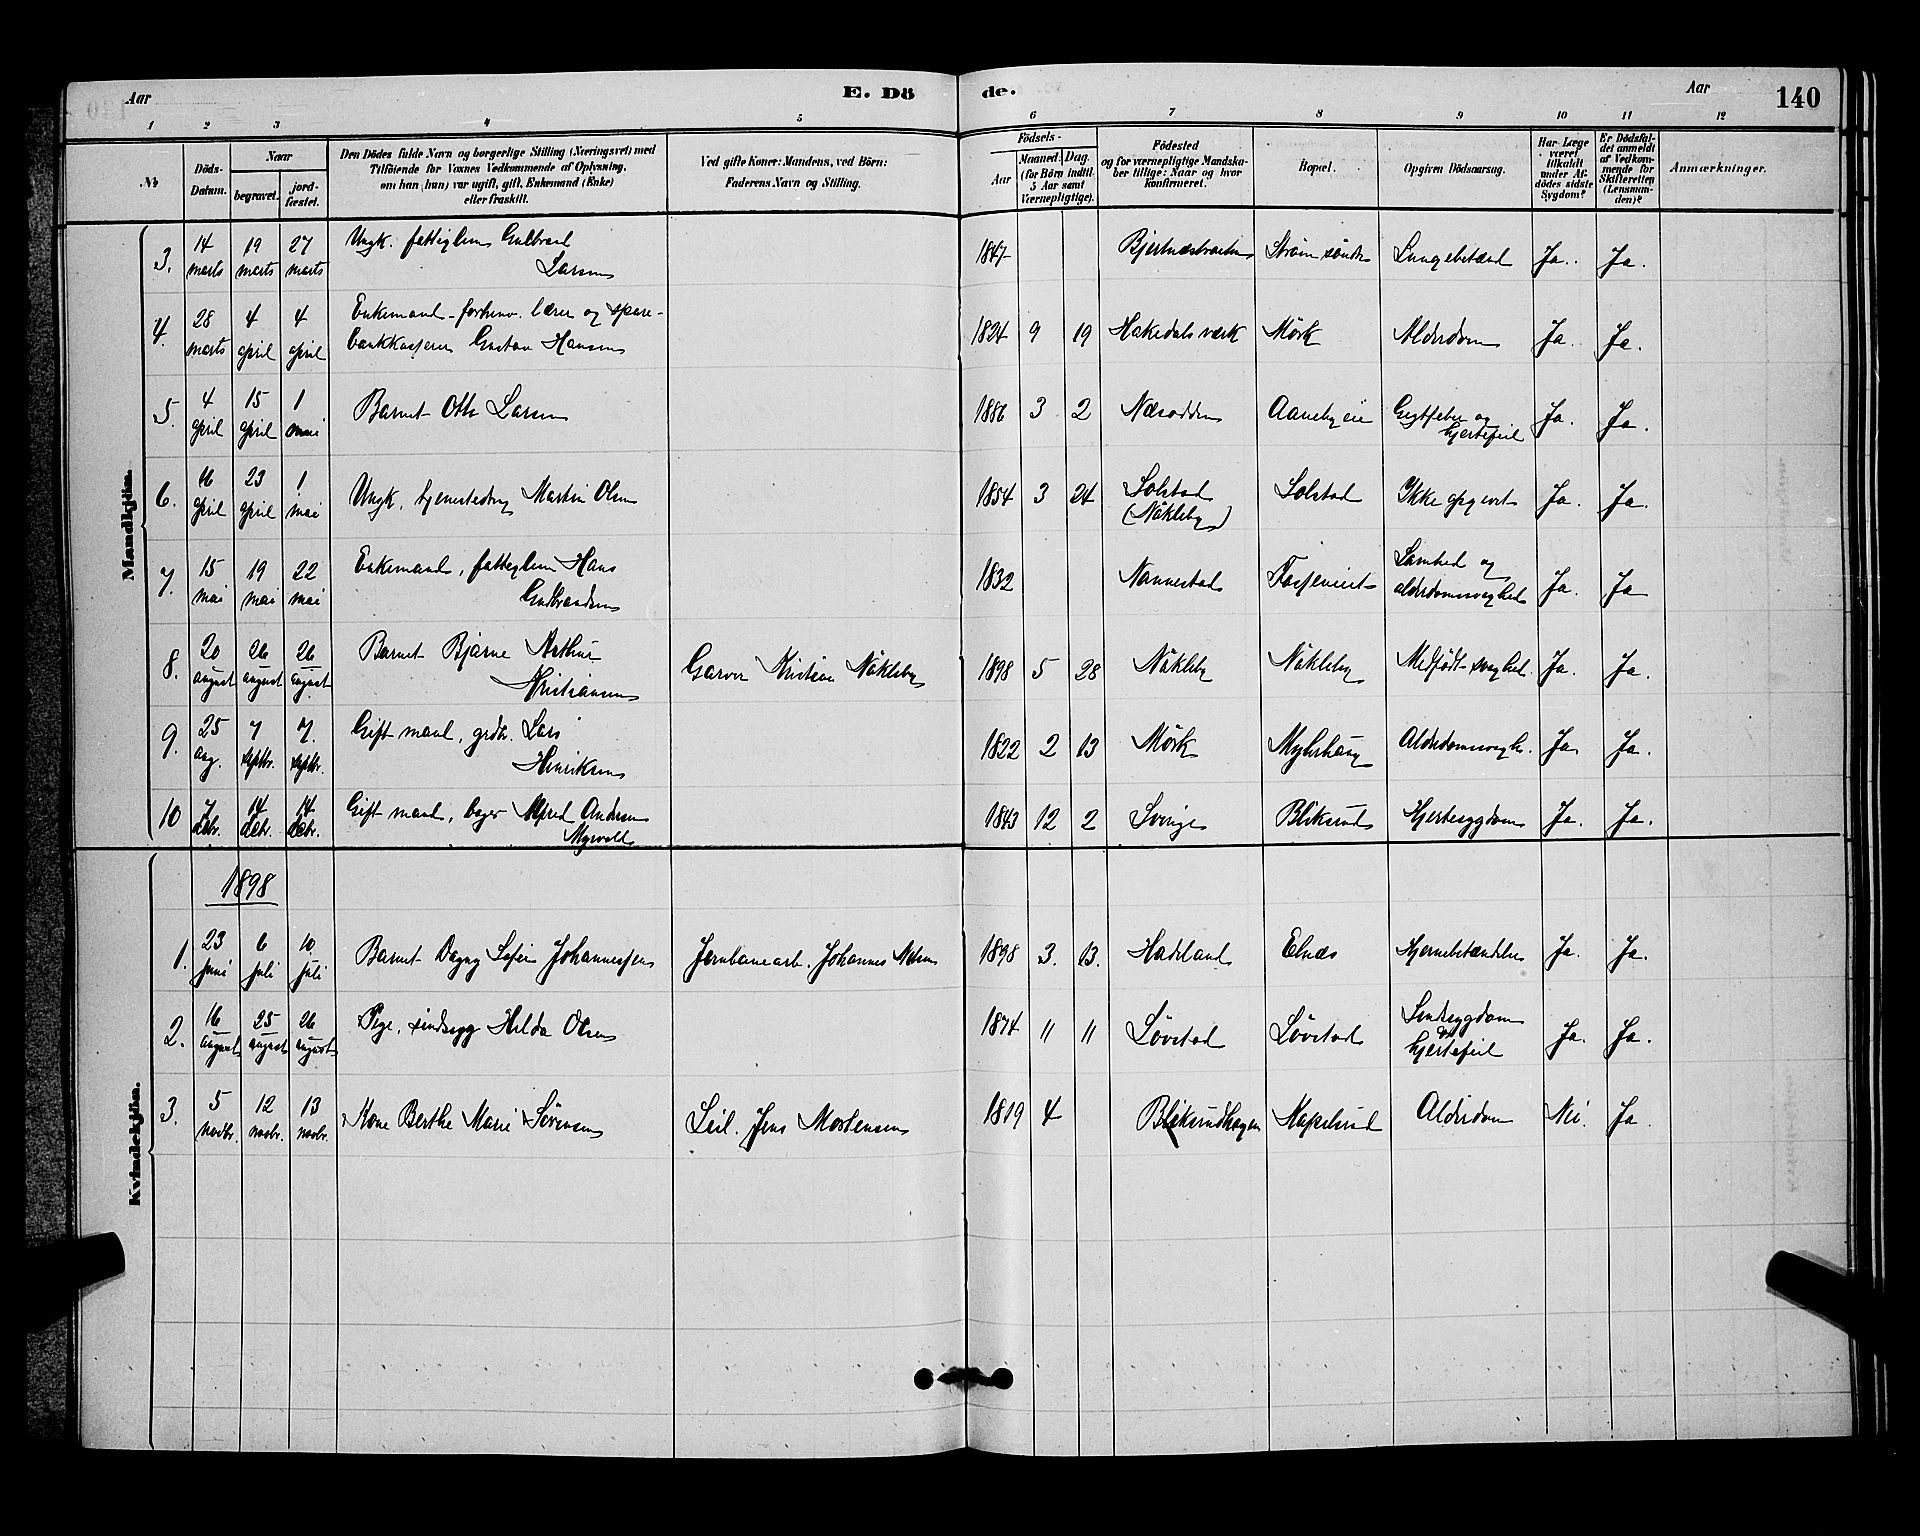 Aar
E. Dö
de.
Aar
140
1 2 3 4 5 6 7 8 9 10 11 12
No
Döds-
Datum.
Naar
begravet.
jord-
fæstet.
Den Dödes fulde Navn og borgerlige Stilling (Næringsvei) med
Tilföiende for Voxnes Vedkommende af Oplysning,
om han (hun) var ugift, gift, Enkemand (Enke)
eller fraskilt.
Ved gifte Koner: Mandens, ved Börn:
Faderens Navn og Stilling.
Födsels-
Aar
Maaned. Dag.
(for Börn indtil
5 Aar samt
Værnepligtige).
Födested
og for værnepligtige Mandska-
ber tillige: Naar og hvor
konfirmeret.
Bopæl.
Opgiven Dödsaarsag.
Har Læge
været
tilkaldt
under Af-
dödes sidste
Sygdom?
Er Dödsfal-
det anmeldt
af Vedkom-
mende for
Skifteretten
(Lensman-
den)?
Anmærkninger.
Mandkjön.
3. 14 marts 19 marts 27 marts Ungk. fattiglem Gulbrand
Larsen 1847 Strøm søndre Lungebetænd Ja. Ja.
4. 28 marts 4 april 4 april Enkemand - forhenv. lærer og spare-
bankkasserer Gustav Hansen 1824 9 19 Hakedals værk Mörk Alderdom Ja. Ja.
5. 4 april 15 april 1 mai Barnet Otto Larsen 1886 3 2 Næsodden Aaneby eie Gigtfeber og
hjertefeil Ja. Ja.
6. 16 april 23 april 1 mai Ungk. Martin Olsen 1854 3 24 Solstad
(Näkleby) Solstad Ikke opgivet Ja. Ja.
7. 15 mai 19 mai 22 mai Enkemand, fattiglem Hans
Gulbrandsen 1832 Nannestad Lamhed og
alderdomssvaghed Ja. Ja
8. 20 august 26 august 26 august. Barnet Bjarne Arthur
Kristiansen Garver Kristian Näkleby 1898 5 28 Näkleby Näkleby Medfödt svaghed. Ja. Ja.
9. 25 aug. 7 septbr. 7. septbr. Gift mand, grdbr. Lars
Henriksen 1822 2 13 Mörk Alderdomssvagh. Ja Ja.
10 7 decbr. 14 decbr. 14 decbr. Gift mand, bager Alfred Andersen
Myrvold 1843 12 2 Svinge Bliksrud Hjertesygdom Ja. Ja.
Kvindekjön.
1898
1. 23 juni 6 juli 10 juli Barnet Dagny Sofie Johannessen Jernbanearb. Johannes Nilsen 1898 3. 13. Hadeland Elnæs Hjernebetændelse Ja. Ja.
2. 16 august 25 august 26 august Pige, sindssyg Hilda Olsen 1874 11 11 Lövstad Lövstad Sindssygdom
og
hjertefeil Ja. Ja.
3. 5 novbr. 12 novbr. 13 novbr. Kone Berthe Marie Sörensen Jens Mortensen 1819 4 Bliksrudhagen Kapelsrud Alderdom Nei. Ja